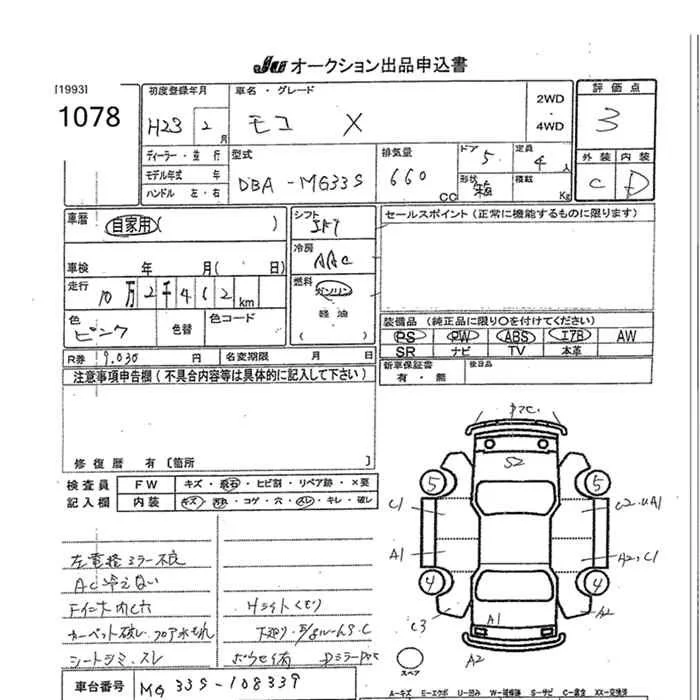 JU オークション出品申込書
[1993]
1078
初度登録年月
H23 2 月
車名・グレード
モコ X
2WD
・
4WD
評価点
3
外装 内装
C D
ディーラー・並行
モデル年式 年
ハンドル 左・右
型式
DBA-MG33S
排気量
660 CC
ドア
5
定員
4 人
形状
箱
積載
Kg
車歴
自家用( )
車検 年 月( 日)
走行
10万2千462 km
色
ピンク
色替
色コード
R券 9,030 円
名変期限 月 日
シフト
IAT
冷房
AAC
燃料
ガソリン
軽油
( )
セールスポイント(正常に機能するものに限ります)
装備品(純正品に限り○を付けてください)
PS PW ABS エアB AW
SR ナビ TV 本革
新車保証書
有・無
後日品
注意事項申告欄(不具合内容等は具体的に記入して下さい)
修復歴 有 [箇所 ]
検査員
記入欄
FW キズ・飛石・ヒビ割・リペア跡・×要
内装 キズ・汚れ・コゲ・穴・スレ・キレ・破レ
左電格ミラー不良
AC冷えない
Fインナー内C穴
カーペット破レ フロア水もれ
シートシミ・スレ
Hライトくもり
下廻り・E/gルームS.C
S2
5
5
C1
C2.UA1
A1
A2,C1
4
4
C3
A1
A2
A2
スペア
車台番号 MG33S-108339
A-キズ E-エクボ U-凹み W-補修跡 S-サビ C-腐食 XX-交換済